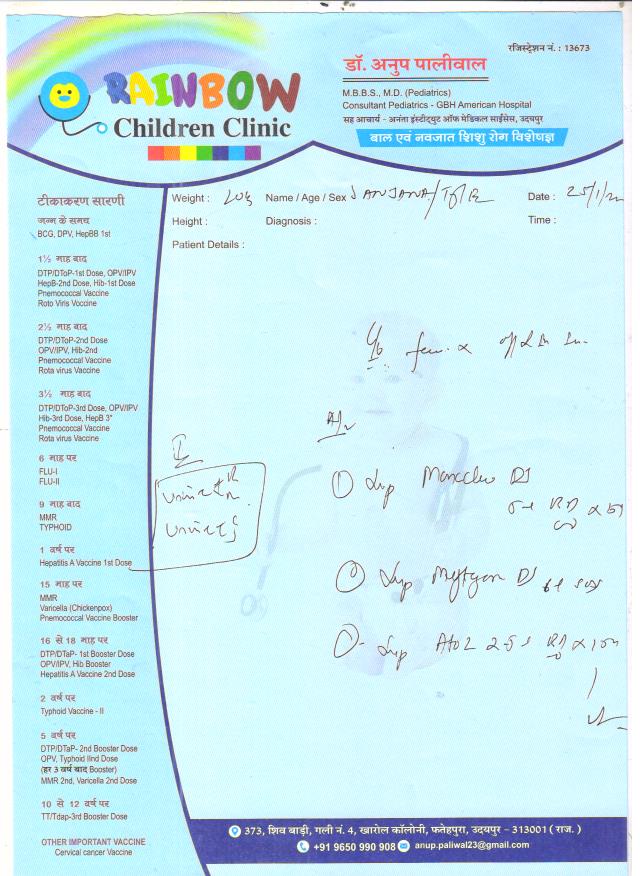 रजिस्ट्रेशन नं. : 13673
डॉ. अनुप पालीवाल
RAINBOW
Children Clinic
M.B.B.S., M.D. (Pediatrics)
Consultant Pediatrics - GBH American Hospital
सह आचार्य - अनंता इंस्टीट्युट ऑफ मेडिकल साईंसेस, उदयपुर
बाल एवं नवजात शिशु रोग विशेषज्ञ
Weight : Name / Age / Sex : Date : 25/1/
Height : Diagnosis : Time :
Patient Details :
टीकाकरण सारणी
जन्म के समय
BCG, DPV, HepBB 1st
1½ माह बाद
DTP/DToP-1st Dose, OPV/IPV
HepB-2nd Dose, Hib-1st Dose
Pnemococcal Vaccine
Roto Viris Voccine
2½ माह बाद
DTP/DToP-2nd Dose
OPV/IPV, Hib-2nd
Pnemococcal Vaccine
Rota virus Vaccine
3½ माह बाद
DTP/DToP-3rd Dose, OPV/IPV
Hib-3rd Dose, HepB 3"
Pnemococcal Vaccine
Rota virus Vaccine
6 माह पर
FLU-I
FLU-II
9 माह बाद
MMR
TYPHOID
1 वर्ष पर
Hepatitis A Vaccine 1st Dose
15 माह पर
MMR
Varicella (Chickenpox)
Pnemococcal Vaccine Booster
16 से 18 माह पर
DTP/DTaP- 1st Booster Dose
OPV/IPV, Hib Booster
Hepatitis A Vaccine 2nd Dose
2 वर्ष पर
Typhoid Vaccine - II
5 वर्ष पर
DTP/DTaP- 2nd Booster Dose
OPV, Typhoid IInd Dose
(हर 3 वर्ष बाद Booster)
MMR 2nd, Varicella 2nd Dose
10 से 12 वर्ष पर
TT/Tdap-3rd Booster Dose
OTHER IMPORTANT VACCINE
Cervical cancer Vaccine
Urine R
Urine C
Syp DS
Syp DS
Syp
373, शिव बाड़ी, गली नं. 4, खारोल कॉलोनी, फतेहपुरा, उदयपुर – 313001 ( राज. )
+91 9650 990 908 anup.paliwal23@gmail.com